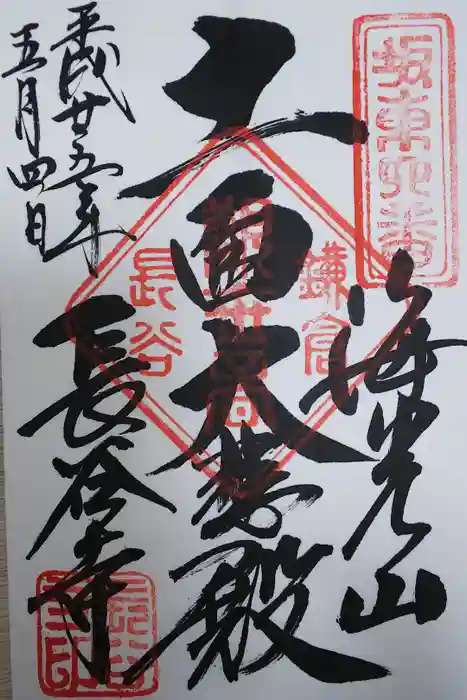 坂東四番
海光山
鎌倉
十一面大悲殿
觀世音
長谷
長谷寺
長谷寺印
平成廿五年
五月四日